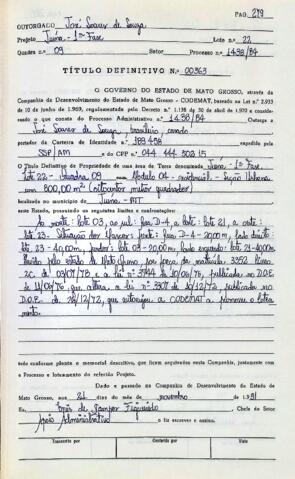 PAG. 279
OUTORGADO José Soares de Souza
Projeto Juína - 1ª Fase Lote n.º 22
Quadra n.º 09 Setor Processo n.º 1438/84
TÍTULO DEFINITIVO N.º 00363
O GOVERNO DO ESTADO DE MATO GROSSO, através da
Companhia de Desenvolvimento do Estado de Mato Grosso - CODEMAT, baseado na Lei n.º 2.933
de 10 de junho de 1969, regulamentada pelo Decreto n.º 1.138 de 30 de abril de 1970 e consideran-
do o que consta do Processo Administrativo n.º 1438/84 Outorga a
José Soares de Souza, brasileiro, casado
portador da Carteira de Identidade n.º 188458 expedida pela
SSP/AM e do CPF n.º 044 444 302 15
O Título Definitivo de Propriedade de uma área de Terra denominada Juína - 1ª Fase -
Lote 22 - Quadra 09 - Módulo 04 - Seção Urbana
com 800,00 m² (oitocentos metros quadrados)
localizada no município de Juína - MT
neste Estado, possuindo os seguintes limites e confrontações:
Ao norte: lote 03, ao sul: Rua D-4, a leste: lote 21, a oeste:
lote 23 - Situação dos Marcos: frente: Rua D-4 - 20,00m, lado direito:
lote 23 - 40,00m, fundos: lote 03 - 20,00m, lado esquerdo: lote 21 - 40,00m
pelo Estado de Mato Grosso por força da matrícula: 3352 livro
2C de 03/07/78 e a lei nº 3744 de 10/06/76, publicada no D.O.E.
de 11/06/76 que altera a lei nº 3307 de 18/12/72, publicada no
D.O.E. de 26/12/72, que autorizou a CODEMAT a promover o lotea
mento.
tudo conforme planta e memorial descritivo, que ficam arquivados nesta Companhia, juntamente com
o Processo e loteamento do referido Projeto.
Dado e passado na Companhia de Desenvolvimento do Estado de
Mato Grosso, aos 21 dias do mês de novembro de 1991
Eu, de Campos Figueiredo, Chefe do Setor
Apoio Administrativo o fiz escrever e assino.
Transcrito por Conferido por Visto